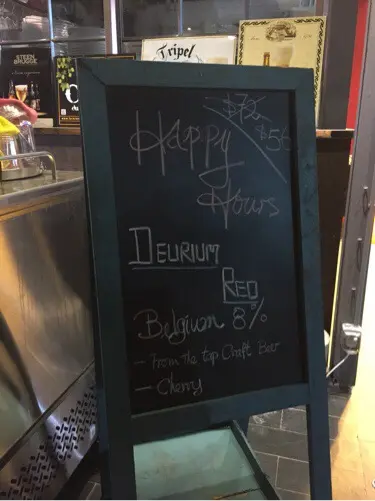 STEEN
BRUGGE
Tripel
$72
$56
Happy
Hours
DELIRIUM
RED
Belgium 8%
- From the top Craft Beer
- Cherry